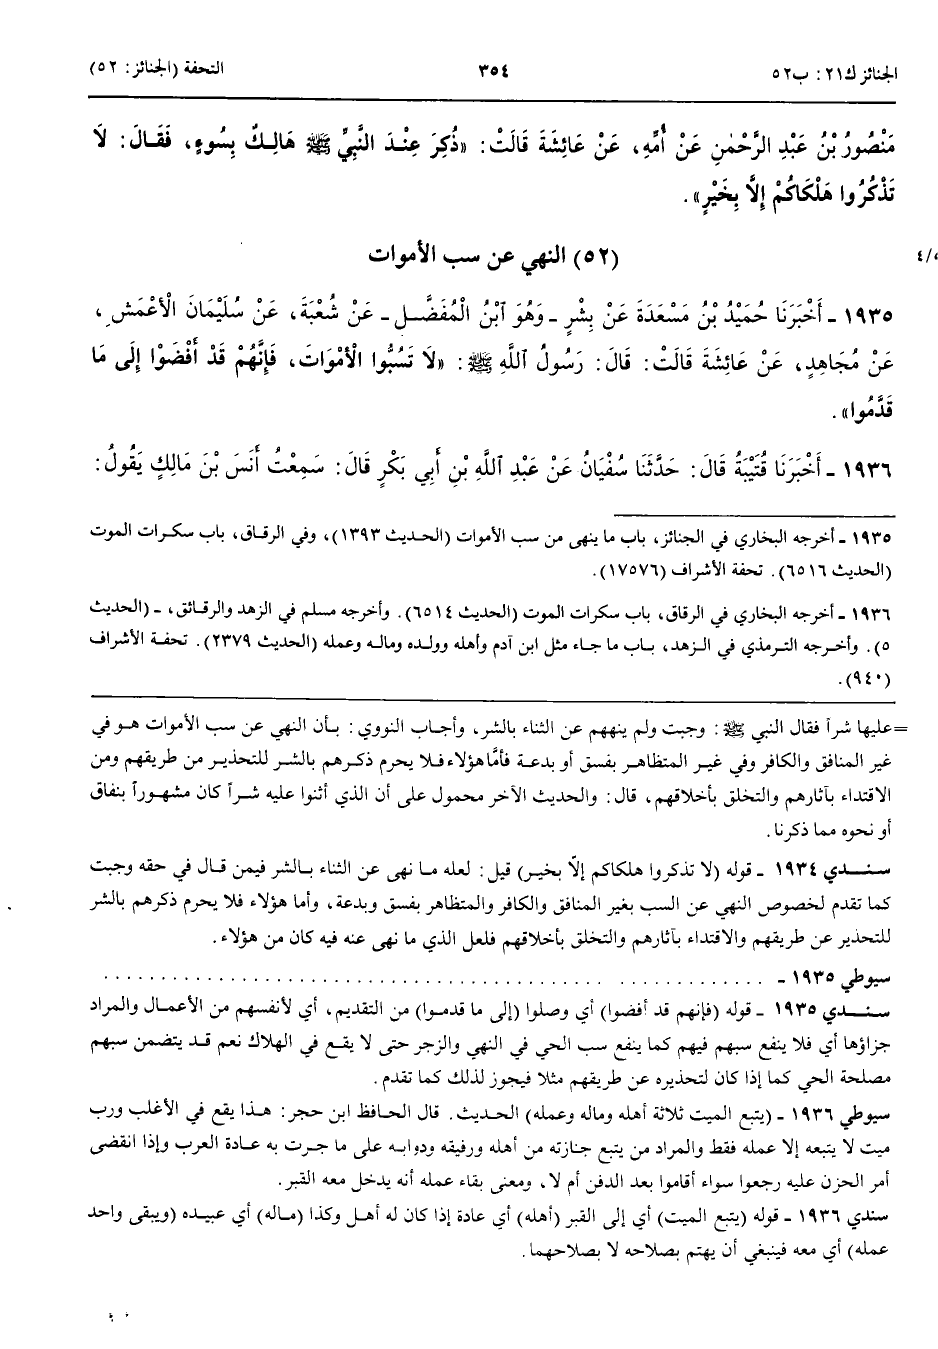 الجنائز ك٢١: ب٥٢ ٣٥٤ التحفة (الجنائز: ٥٢)
مَنْصُورُ بْنُ عَبْدِ الرَّحْمٰنِ عَنْ أُمِّهِ، عَنْ عَائِشَةَ قَالَتْ: «ذُكِرَ عِنْدَ النَّبِيِّ ﷺ هَالِكٌ بِسُوءٍ، فَقَالَ: لَا
تَذْكُرُوا هَلْكَاكُمْ إِلَّا بِخَيْرٍ».
(٥٢) النهي عن سب الأموات
٤/
١٩٣٥ ـ أَخْبَرَنَا حُمَيْدُ بْنُ مَسْعَدَةَ عَنْ بِشْرٍ ـ وَهُوَ ٱبْنُ الْمُفَضَّلِ ـ عَنْ شُعْبَةَ، عَنْ سُلَيْمَانَ الْأَعْمَشِ،
عَنْ مُجَاهِدٍ، عَنْ عَائِشَةَ قَالَتْ: قَالَ: رَسُولُ ٱللَّهِ ﷺ: «لَا تَسُبُّوا الْأَمْوَاتَ، فَإِنَّهُمْ قَدْ أَفْضَوْا إِلَى مَا
قَدَّمُوا».
١٩٣٦ ـ أَخْبَرَنَا قُتَيْبَةُ قَالَ: حَدَّثَنَا سُفْيَانُ عَنْ عَبْدِ ٱللَّهِ بْنِ أَبِي بَكْرٍ قَالَ: سَمِعْتُ أَنَسَ بْنَ مَالِكٍ يَقُولُ:
١٩٣٥ ـ أخرجه البخاري في الجنائز، باب ما ينهى من سب الأموات (الحديث ١٣٩٣)، وفي الرقاق، باب سكرات الموت
(الحديث ٦٥١٦). تحفة الأشراف (١٧٥٧٦).
١٩٣٦ ـ أخرجه البخاري في الرقاق، باب سكرات الموت (الحديث ٦٥١٤). وأخرجه مسلم في الزهد والرقائق، ـ (الحديث
٥). وأخرجه الترمذي في الزهد، باب ما جاء مثل ابن آدم وأهله وولده وماله وعمله (الحديث ٢٣٧٩). تحفة الأشراف
(٩٤٠).
=عليها شراً فقال النبي ﷺ: وجبت ولم ينههم عن الثناء بالشر، وأجاب النووي: بأن النهي عن سب الأموات هو في
غير المنافق والكافر وفي غير المتظاهر بفسق أو بدعة فأمَّا هؤلاء فلا يحرم ذكرهم بالشر للتحذير من طريقهم ومن
الاقتداء بآثارهم والتخلق بأخلاقهم، قال: والحديث الآخر محمول على أن الذي أثنوا عليه شراً كان مشهوراً بنفاق
أو نحوه مما ذكرنا.
سندي ١٩٣٤ ـ قوله (لا تذكروا هلكاكم إلاّ بخير) قيل: لعله ما نهى عن الثناء بالشر فيمن قال في حقه وجبت
كما تقدم لخصوص النهي عن السب بغير المنافق والكافر والمتظاهر بفسق وبدعة، وأما هؤلاء فلا يحرم ذكرهم بالشر
للتحذير عن طريقهم والاقتداء بآثارهم والتخلق بأخلاقهم فلعل الذي ما نهى عنه فيه كان من هؤلاء.
سيوطي ١٩٣٥ ـ ........................................................
سندي ١٩٣٥ ـ قوله (فإنهم قد أفضوا) أي وصلوا (إلى ما قدموا) من التقديم، أي لأنفسهم من الأعمال والمراد
جزاؤها أي فلا ينفع سبهم فيهم كما ينفع سب الحي في النهي والزجر حتى لا يقع في الهلاك نعم قد يتضمن سبهم
مصلحة الحي كما إذا كان لتحذيره عن طريقهم مثلا فيجوز لذلك كما تقدم.
سيوطي ١٩٣٦ ـ (يتبع الميت ثلاثة أهله وماله وعمله) الحديث. قال الحافظ ابن حجر: هذا يقع في الأغلب ورب
ميت لا يتبعه إلا عمله فقط والمراد من يتبع جنازته من أهله ورفيقه ودوابه على ما جرت به عادة العرب وإذا انقضى
أمر الحزن عليه رجعوا سواء أقاموا بعد الدفن أم لا، ومعنى بقاء عمله أنه يدخل معه القبر.
سندي ١٩٣٦ ـ قوله (يتبع الميت) أي إلى القبر (أهله) أي عادة إذا كان له أهل وكذا (ماله) أي عبيده (ويبقى واحد
عمله) أي معه فينبغي أن يهتم بصلاحه لا بصلاحهما.